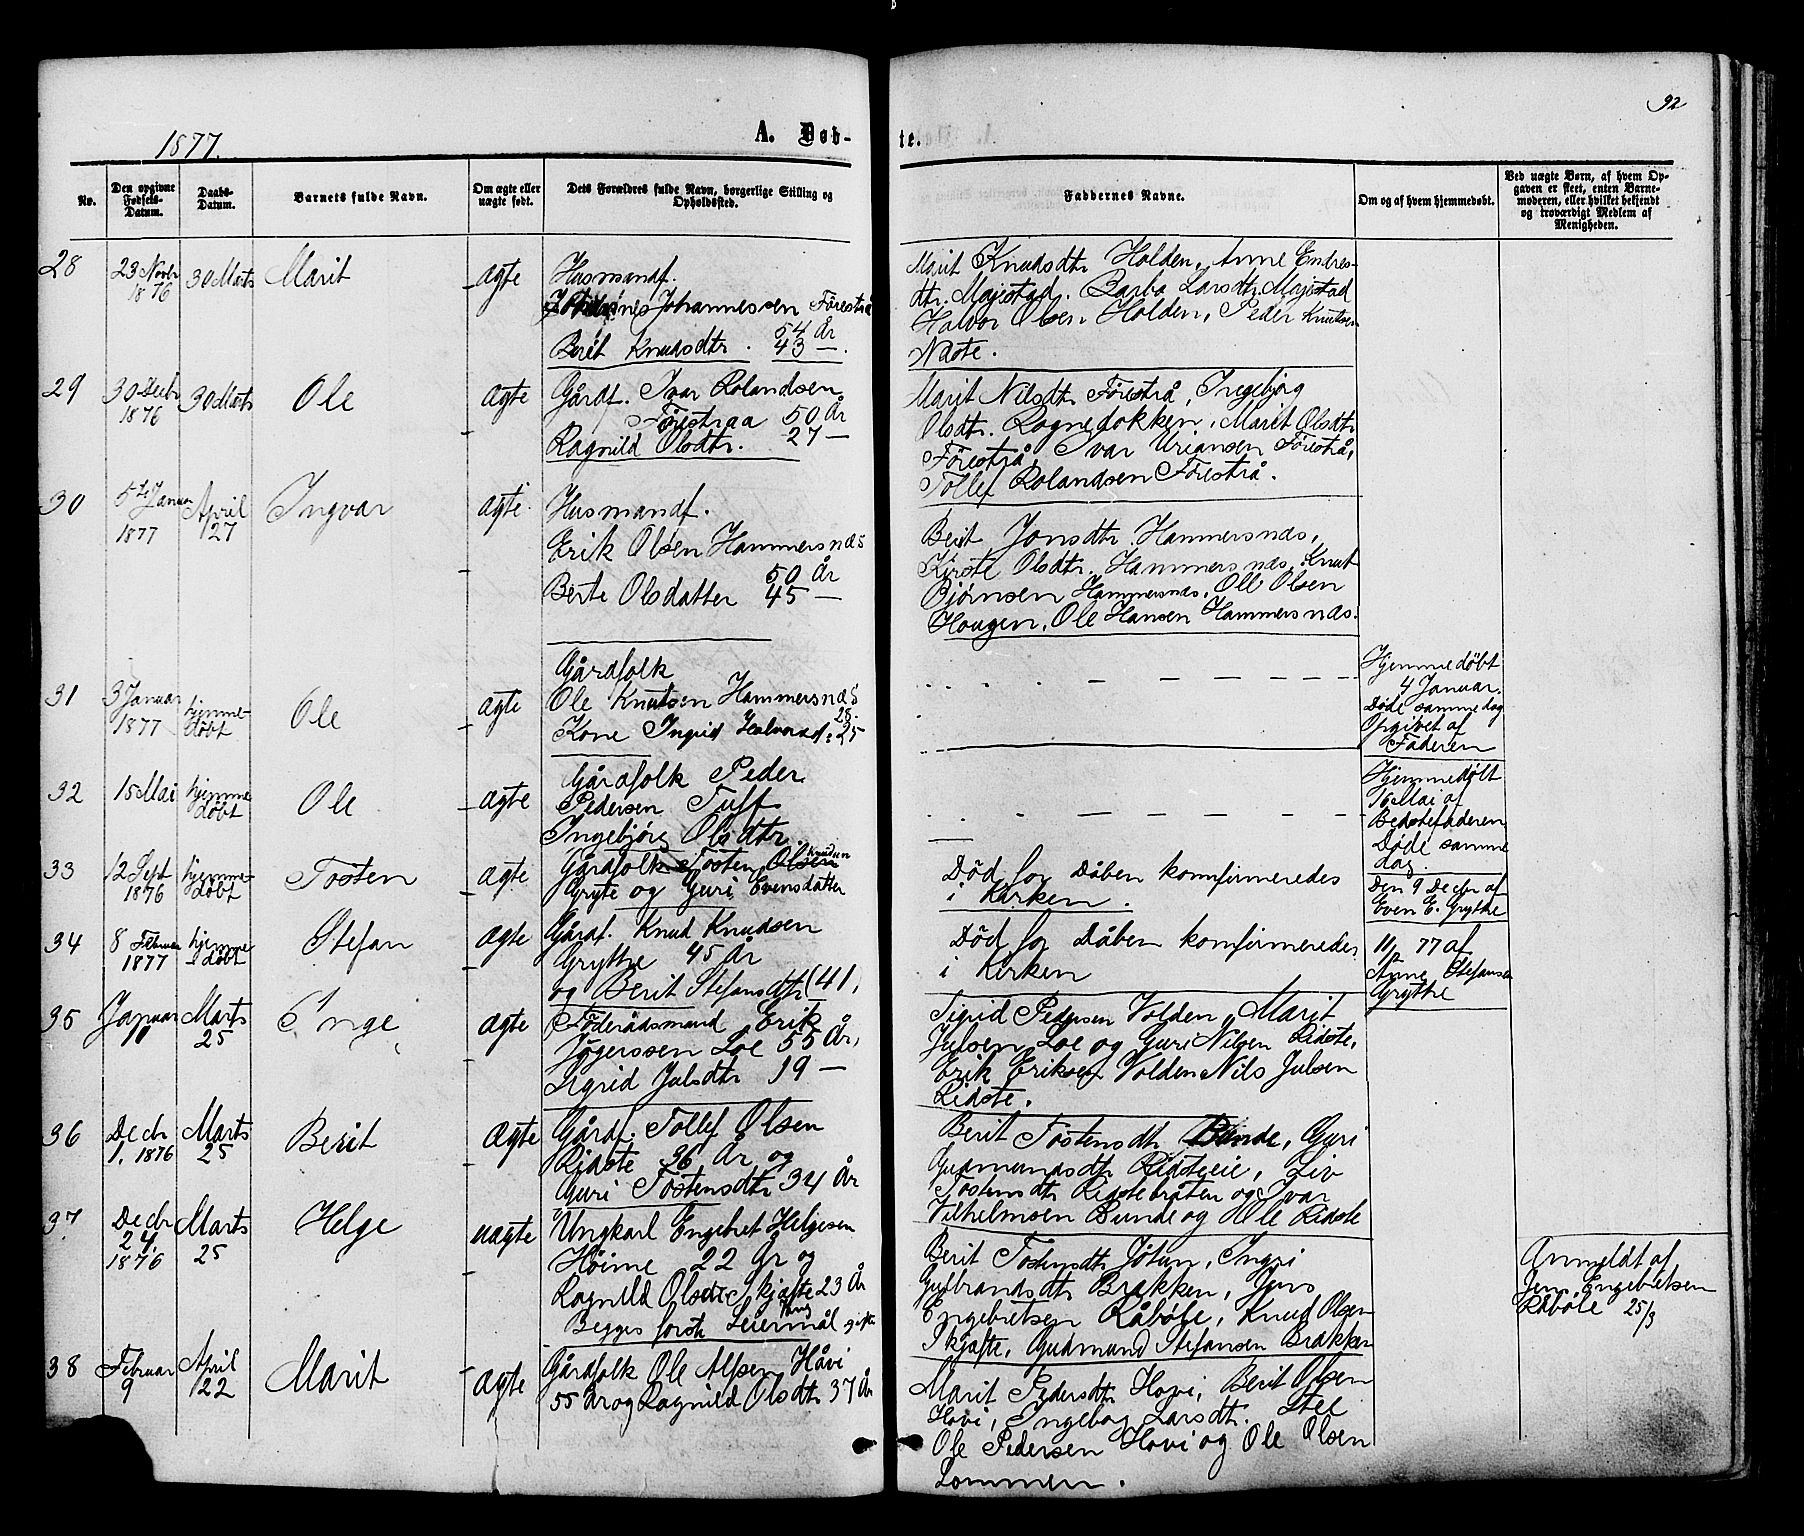 92
1877.
A. Døb-
te.
No.
Den opgivne Fødsels-Datum.
Daabs-Datum.
Barnets fulde Navn.
Om ægte eller uægte født.
Dets Forældres fulde Navn, borgerlige Stilling og Opholdssted.
Faddernes Navne.
Om og af hvem hjemmedøbt.
Ved uægte Børn, af hvem Opgaven er skeet, enten Barnemoderen, eller hvilket bekjendt og troværdigt Medlem af Menigheden.
28
23 Novbr 1876
30 Marts
Marit
ægte
Husmandf.
Johannessen Förestrå
54 År
Berit Knudsdtr. 43 —
Marit Knudsdtr Holden, Anne Endres-
dtr. Majstad. Barbo Larsdtr. Majstad
Halvor Olsen Holden, Peder Knutsen
Næste.
29
30 Decbr 1876
30 Marts
Ole
ægte
Gårdf. Ivar Rolandsen
Förestraa 50 År
Ragnild Olsdtr. 27 —
Marit Nilsdtr Förestrå, Ingebjørg
Olsdtr. Rognedokken, Marit Olsdtr
Förestrå, Ivar Uriansen Förestrå,
Tollef Rolandsen Förestrå.
30
5te Januar 1877
April 27
Ingvar
ægte
Husmandf.
Erik Olsen Hammersnæs
50 År
Berte Olsdatter 45 —
Berit Jonsdtr. Hammersnæs,
Kirste Olsdtr. Hammersnæs. Knut
Bjørnsen Hammersnæs, Ole Olsen
Hougen. Ole Hansen Hammersnæs.
31
3 Januar 1877
hjemme-døbt
Ole
ægte
Gårdfolk
Ole Knutsen Hammersnæs
28.
Kone Ingrid Halvorsd: 25
Hjemmedøbt
4 Januar.
Døde samme dag
Opgivet af
Faderen
32
15 Mai
hjemme døbt
Ole
ægte
Gårdfolk Peder
Pedersen Tuff
Ingebjörg Olsdtr
Hjemmedøbt
16 Mai af
Bedstefaderen
Døde samme
dag.
33
12 Sept 1876
hjemme-døbt
Tosten
ægte
Gårdfolk Tosten Olsen Knudsen
Gryte og Guri Evensdatter
Død for Dåben komfirmeredes
i Kirken.
Den 9 Decbr af
Even E. Grythe
34
8 Februar 1877
hjemme døbt
Stefan
ægte
Gårdf. Knud Knudsen
Grytte 45 År
og Berit Stefansdtr (41,
Død for Dåben komfirmeredes
i Kirken
11/2 77 af
Anne Stefansen
Grythe
35
Januar
Marts 25
Inge
ægte
Föderådsmand Erik
Jögerssen Loe 55 År,
Sigrid Julsdtr 19 —
Sigrid Pedersen Volden, Marit
Julsen Loe og Guri Nilsen Ridste,
Erik Eriksen Volden Nils Julsen
Ridste.
36
Decbr 1. 1876
Marts 25
Berit
ægte
Gårdf. Tollef Olsen
Ridste 36 År og
Guri Tostensdtr 34 År
Berit Tostensdtr Bunde, Guri
Gudmundsdtr Ridsteeie, Liv
Tostensdtr Ridstebråten og Ivar
Vilhelmsen Bunde og Ole Ridste
37.
Decbr 24. 1876
Marts 25
Helge
uægte
Ungkarl Engebret Helgesen
Höime 22 År og
Ragnild Olsdtr Skjafte 23 År
Begges første Leiermål
Berit Tostensdtr Jötun, Ingri
Gulbrandsdtr Brækken, Jens
Engebretsen Råböle, Knud Olsen
Skjafte, Gudmund Stefansen Brækken
Anmeldt af
Jens Engebretsen
Råböle 25/3
38
Februar 9
April 22
Marit
ægte
Gårdfolk Ole Alfsen Håvi
55 År og Ragnild Olsdtr 37 År
Marit Pedersdtr Hovi, Berit Olsen
Hovi, Ingebor Larsdtr. Stee
Ole Pedersen Hovi og Ole Olsen
Lommen.